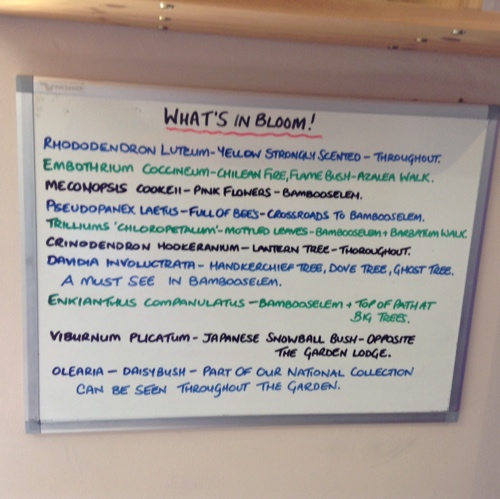 WHAT'S IN BLOOM!
RHODODENDRON LUTEUM - YELLOW STRONGLY SCENTED - THROUGHOUT.
EMBOTHRIUM COCCINEUM - CHILEAN FIRE, FLAME BUSH - AZALEA WALK.
MECONOPSIS COOKEII - PINK FLOWERS - BAMBOOSELEM.
PSEUDOPANEX LAETUS - FULL OF BEES - CROSSROADS TO BAMBOOSELEM.
TRILLIUMS 'CHLOROPETALUM' - MOTTLED LEAVES - BAMBOOSELEM + BARBATUM WALK
CRINODENDRON HOOKERANIUM - LANTERN TREE - THOROUGHOUT.
DAVIDIA INVOLUCTRATA - HANDKERCHIEF TREE, DOVE TREE, GHOST TREE.
A MUST SEE IN BAMBOOSELEM.
ENKIANTHUS COMPANULATUS - BAMBOOSELEM + TOP OF PATH AT
BIG TREES.
VIBURNUM PLICATUM - JAPANESE SNOWBALL BUSH - OPPOSITE
THE GARDEN LODGE.
OLEARIA - DAISYBUSH - PART OF OUR NATIONAL COLLECTION
CAN BE SEEN THROUGHOUT THE GARDEN.